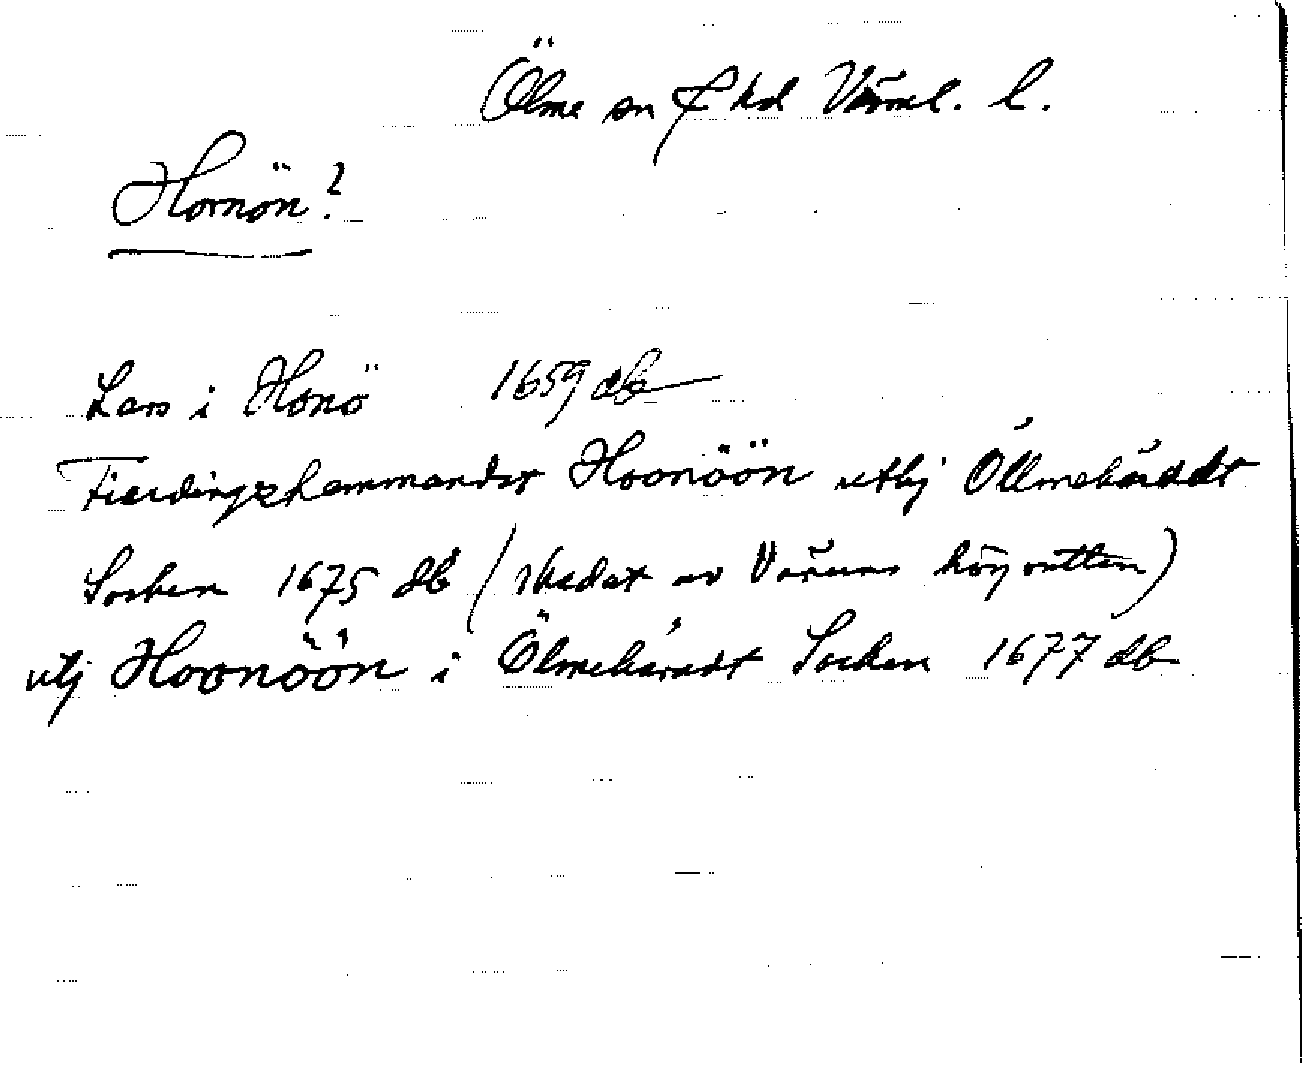 Ölme sn f hd Värml. l.
Hornön?
Lars i Honö 1659 db
Fierdingzkammander Hoonöön utbj Ölmehäradt
Socken 1675 db (skadat av Vänern högvatten)
utj Hoonöön i Ölmehäradt Socken 1677 db